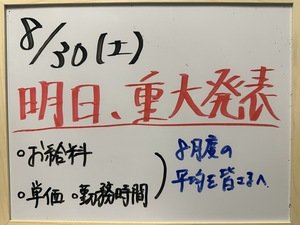 8/30(土)
明日、重大発表
○お給料
○単価 ○勤務時間
8月度の
平均を皆さまへ